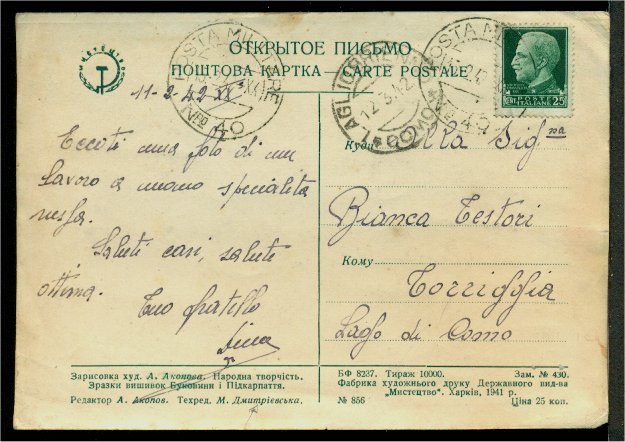 МИСТЕЦТВО
ОТКРЫТОЕ ПИСЬМО
ПОШТОВА КАРТКА — CARTE POSTALE
POSTA MILITARE
Nº 40
POSTA MILITARE
Nº 40
12.3.42
POSTE ITALIANE
CENT. 25
11-2-42 XX°
Eccoti una foto di un
lavoro a mano specialità
russa.
Saluti cari, saluti
ottima.
Tuo fratello
Куди Alla Signa
Bianca Testori
Кому
Torriggia
Lago di Como
Зарисовка худ. А. Акопова. Народна творчість.
Зразки вишивок Буковини і Підкарпаття.
Редактор А. Акопов. Техред. М. Дмитрієвська.
БФ 8237. Тираж 10000. Зам. № 430.
Фабрика художнього друку Державного вид-ва
„Мистецтво“. Харків, 1941 р.
№ 856 Ціна 25 коп.